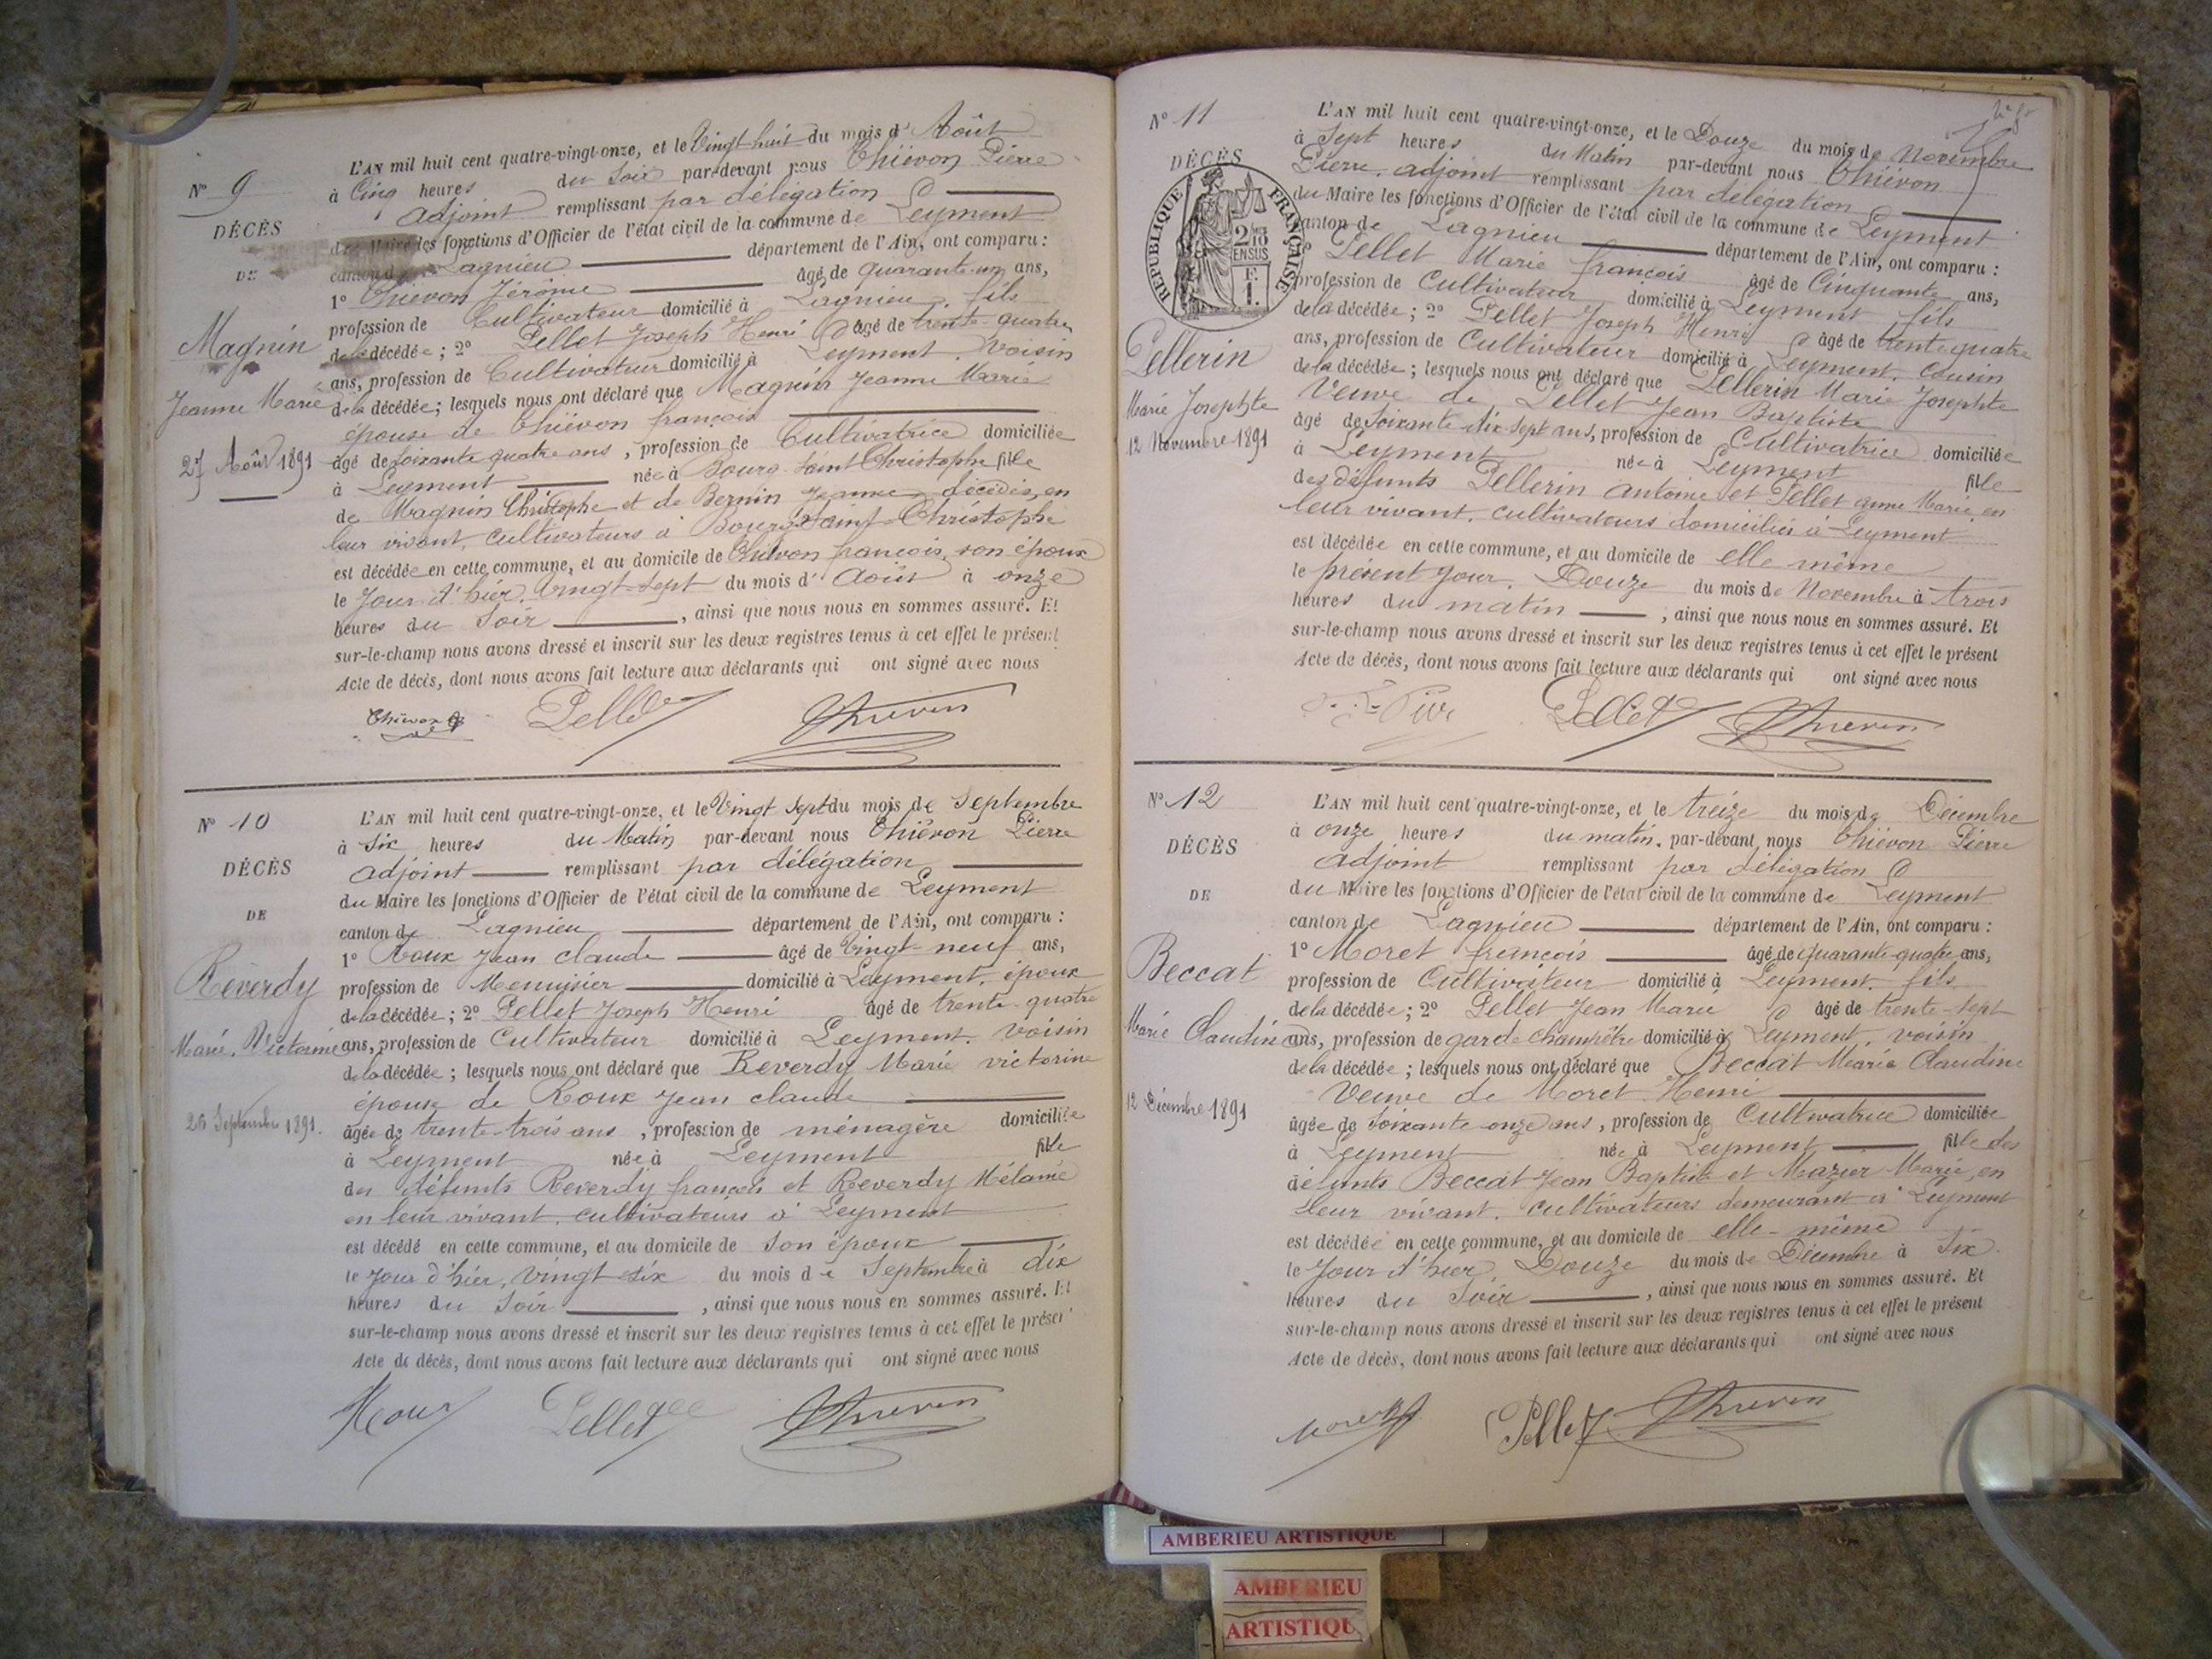 N° 9
DÉCÈS
DE
Magnin
Jeanne Marie
27 Août 1891
L'AN mil huit cent quatre-vingt-onze, et le Vingt huit du mois d'Août
à Cinq heures du Soir par-devant nous Thiévon Pierre
adjoint remplissant par délégation
du Maire les fonctions d'Officier de l'état civil de la commune de Leyment
canton de Lagnieu département de l'Ain, ont comparu :
1° Thiévon Jérôme âgé de quarante-un ans,
profession de Cultivateur domicilié à Lagnieu, fils
de la décédée ; 2° Pellet Joseph Henri âgé de trente-quatre
ans, profession de Cultivateur domicilié à Leyment, Voisin
de la décédée ; lesquels nous ont déclaré que Magnin Jeanne Marie
épouse de Thiévon françois
âgé de soixante quatre ans, profession de Cultivatrice domiciliée
à Leyment née à Bourg-Saint Christophe fille
de Magnin Christophe et de Bernin Jeanne, décédés, en
leur vivant, cultivateurs à Bourg-Saint-Christophe
est décédée en cette commune, et au domicile de Thiévon françois, son époux
le Jour d'hier, Vingt-sept du mois d'Août à onze
heures du Soir, ainsi que nous nous en sommes assuré. Et
sur-le-champ nous avons dressé et inscrit sur les deux registres tenus à cet effet le présent
Acte de décès, dont nous avons fait lecture aux déclarants qui ont signé avec nous
Pellet Thievon
N° 10
DÉCÈS
DE
Réverdy
Marie Victorine
26 Septembre 1891.
L'AN mil huit cent quatre-vingt-onze, et le Vingt Sept du mois de Septembre
à Six heures du Matin par-devant nous Thiévon Pierre
adjoint remplissant par délégation
du Maire les fonctions d'Officier de l'état civil de la commune de Leyment
canton de Lagnieu département de l'Ain, ont comparu :
1° Roux Jean claude âgé de Vingt-neuf ans,
profession de Menuisier domicilié à Leyment, époux
de la décédée ; 2° Pellet Joseph Henri âgé de trente-quatre
ans, profession de Cultivateur domicilié à Leyment, voisin
de la décédée ; lesquels nous ont déclaré que Reverdy Marie victorine
épouse de Roux Jean claude
âgée de trente-trois ans, profession de ménagère domiciliée
à Leyment née à Leyment fille
des défunts Reverdy françois et Reverdy Mélanie
en leur vivant, cultivateurs à Leyment
est décédé en cette commune, et au domicile de son époux
le Jour d'hier, vingt-six du mois de Septembre à dix
heures du Soir, ainsi que nous nous en sommes assuré. Et
sur-le-champ nous avons dressé et inscrit sur les deux registres tenus à cet effet le présent
Acte de décès, dont nous avons fait lecture aux déclarants qui ont signé avec nous
Roux Pellet Thievon
N° 11
DÉCÈS
RÉPUBLIQUE FRANÇAISE
Pellerin
Marie Josephte
12 Novembre 1891
L'AN mil huit cent quatre-vingt-onze, et le Douze du mois de Novembre
à Sept heures du Matin par-devant nous Thiévon
Pierre, adjoint remplissant par délégation
du Maire les fonctions d'Officier de l'état civil de la commune de Leyment
canton de Lagnieu département de l'Ain, ont comparu :
Pellet Marie françois âgé de Cinquante ans,
profession de Cultivateur domicilié à Leyment fils
de la décédée ; 2° Pellet Joseph Henri âgé de trente quatre
ans, profession de Cultivateur domicilié à Leyment, cousin
de la décédée ; lesquels nous ont déclaré que Pellerin Marie Josephte
Veuve de Pellet Jean Baptiste
âgé de soixante-dix sept ans, profession de Cultivatrice domiciliée
à Leyment née à Leyment fille
des défunts Pellerin antoine et Pellet anne Marie, en
leur vivant, cultivateurs domiciliés à Leyment
est décédée en cette commune, et au domicile de elle même
le présent jour, Douze du mois de Novembre à trois
heures du matin, ainsi que nous nous en sommes assuré. Et
sur-le-champ nous avons dressé et inscrit sur les deux registres tenus à cet effet le présent
Acte de décès, dont nous avons fait lecture aux déclarants qui ont signé avec nous
Pellet Thievon
N° 12
DÉCÈS
DE
Beccat
Marie Claudine
12 Décembre 1891
L'AN mil huit cent quatre-vingt-onze, et le treize du mois de Décembre
à onze heures du matin, par-devant nous Thiévon Pierre
adjoint remplissant par délégation
du Maire les fonctions d'Officier de l'état civil de la commune de Leyment
canton de Lagnieu département de l'Ain, ont comparu :
1° Moret françois âgé de quarante-quatre ans,
profession de Cultivateur domicilié à Leyment, fils
de la décédée ; 2° Pellet Jean Marie âgé de trente-sept
ans, profession de garde champêtre domicilié à Leyment, voisin
de la décédée ; lesquels nous ont déclaré que Beccat Marie Claudine
Veuve de Moret Henri
âgée de soixante-onze ans, profession de Cultivatrice domiciliée
à Leyment née à Leyment fille des
défunts Beccat Jean Baptiste et Mazuir Marie, en
leur vivant, cultivateurs demeurant à Leyment
est décédée en cette commune, et au domicile de elle-même
le Jour d'hier, Douze du mois de Décembre à Six
heures du Soir, ainsi que nous nous en sommes assuré. Et
sur-le-champ nous avons dressé et inscrit sur les deux registres tenus à cet effet le présent
Acte de décès, dont nous avons fait lecture aux déclarants qui ont signé avec nous
Moret Pellet Thievon
AMBERIEU ARTISTIQUE
AMBERIEU
ARTISTIQU